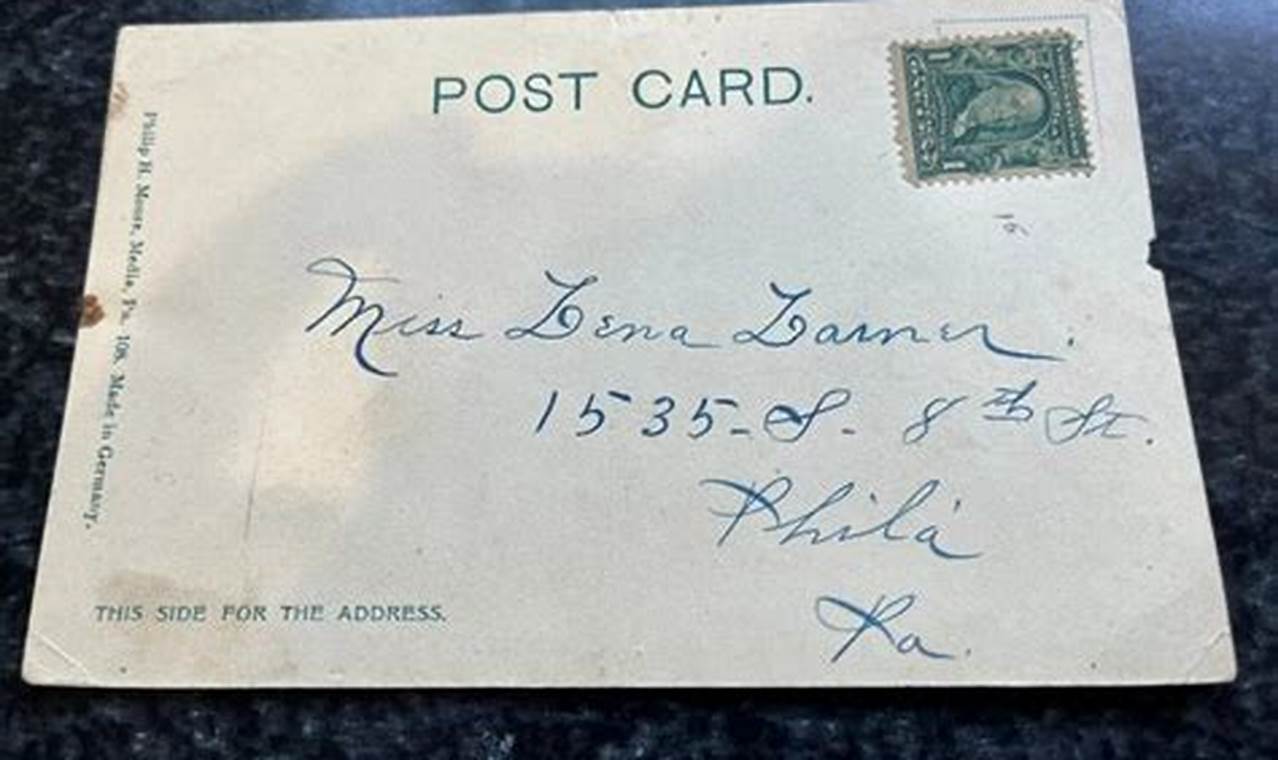 POST CARD.
Miss Lena Larner.
1535-S. 8th St.
Phila
Pa.
THIS SIDE FOR THE ADDRESS.
Philip H. Moore, Media, Pa. 108. Made in Germany.